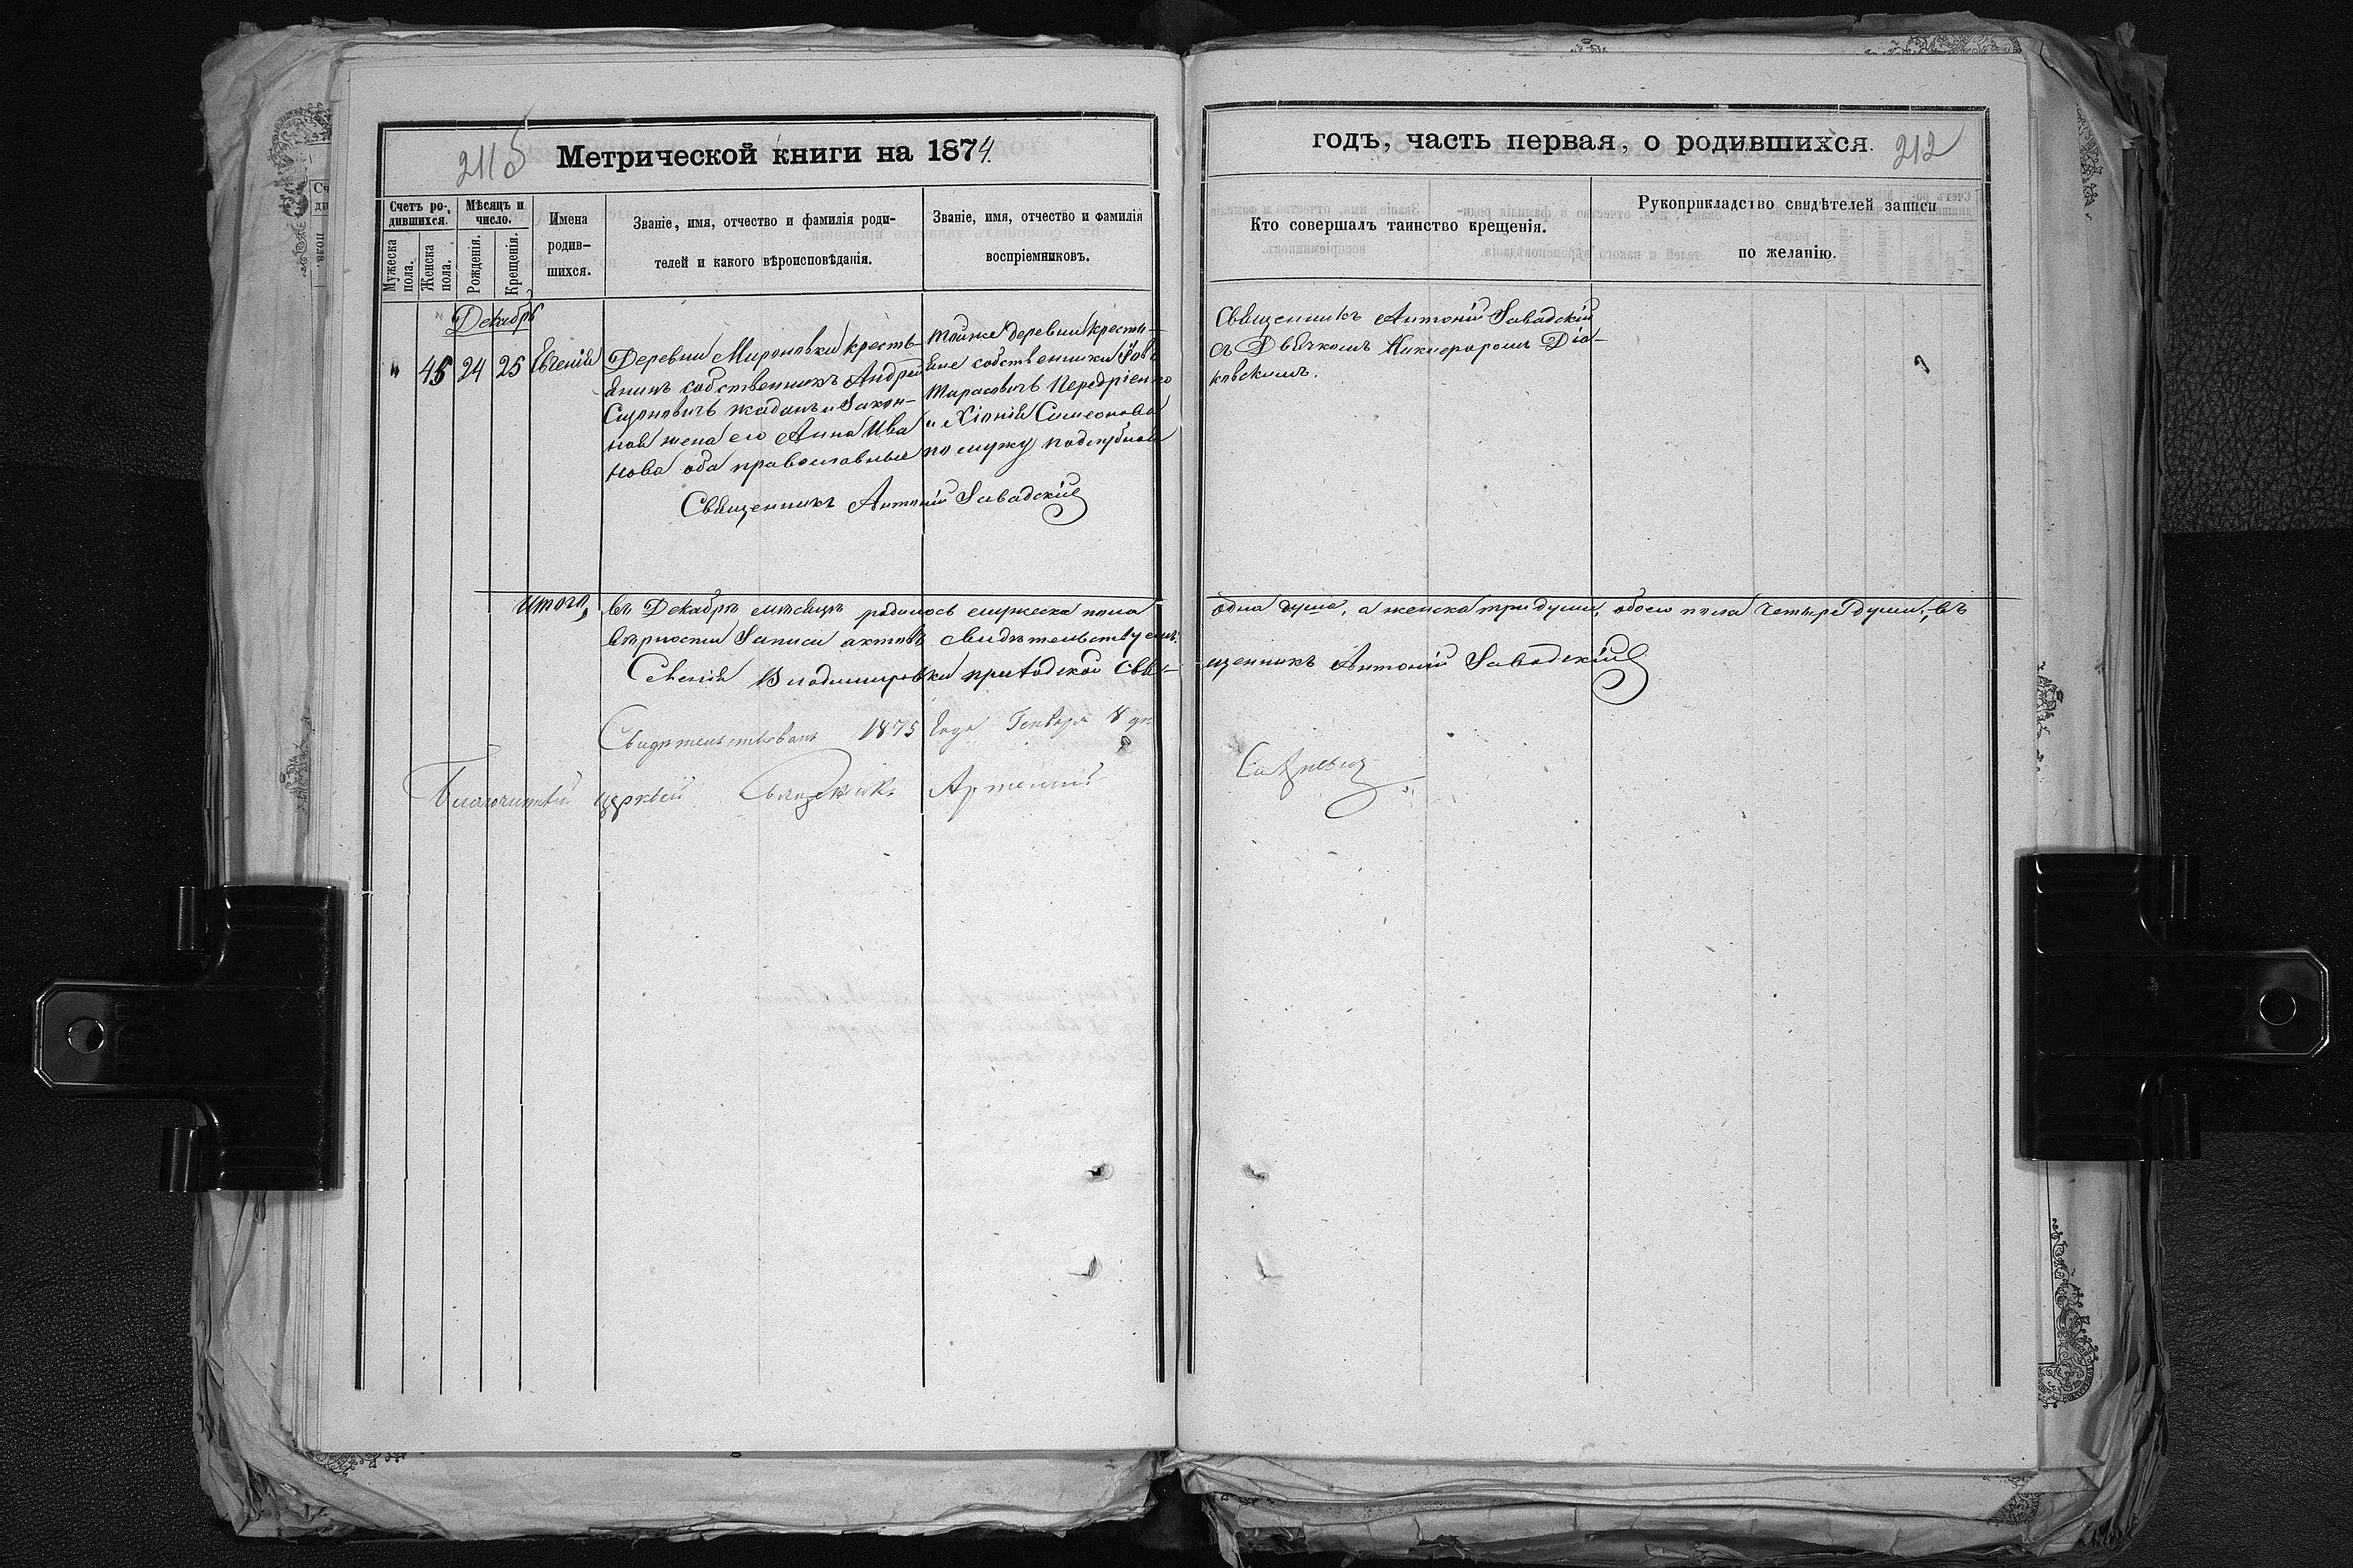 211 б
Метрической книги на 1874.
Счетъ родившихся.
Мѣсяцъ и число.
Мужеска пола.
Женска пола.
Рожденія.
Крещенія.
Имена родившихся.
Званіе, имя, отчество и фамилія роди-
телей и какого вѣроисповѣданія.
Званіе, имя, отчество и фамилія
воспріемниковъ.
Декабрь
" 45 24 25 Евгенія
Деревни Мироновки кресть-
янинъ собственникъ Андрей
жаданъ и Закон-
ная жена его Анна Ива
нова оба православные
Священникъ Антоній Завадскій
тойже деревни крестья-
не собственники
Тарасовичъ
и Хіонія Симеонова
по мужу
Итого, въ Декабрѣ мѣсяцѣ родилось мужеска пола
вѣрности Записи актовъ свидѣтельствуемъ:
Селенія Владимировки приходской Свя-
Свидѣтельствовалъ 1875 года Генваря 8 дн
Благочинный церквей Священникъ Артемій
годъ, часть первая, о родившихся.
212
Кто совершалъ таинство крещенія.
Рукоприкладство свидѣтелей записи
по желанію.
Священникъ Антоній Завадскій
съ Дьячкомъ Никифоромъ Діа-
ковскимъ.
одна душа, а женска три души, обоего пола четыре души; въ
щенникъ Антоній Завадскій